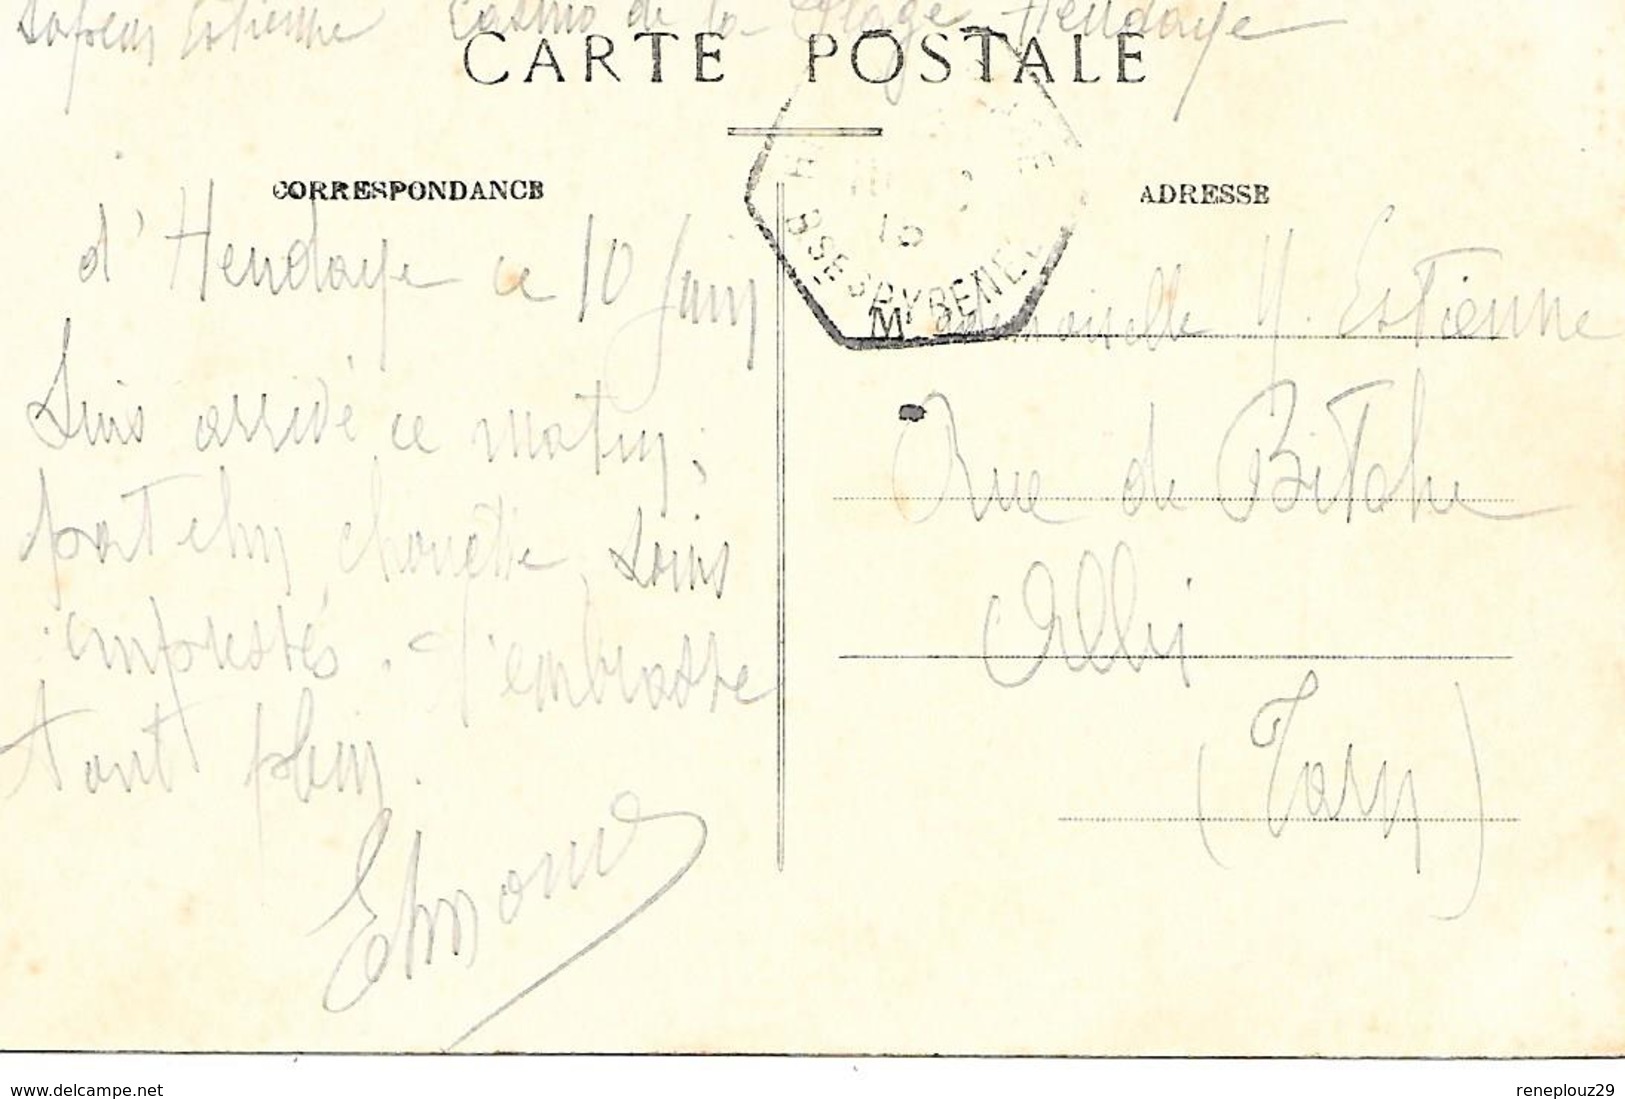 Sapeur Estienne Casino de la Plage Hendaye
CARTE POSTALE
CORRESPONDANCE
ADRESSE
d'Hendaye ce 10 Juin
Suis arrivé ce matin;
patelin chouette, soins
empressés. T'embrasse
tout plein.
Edmond
BSES PYRENEES
15
Mademoiselle Y. Estienne
Rue de Bitche
Albi
(Tarn)
www.delcampe.net
reneplouz29